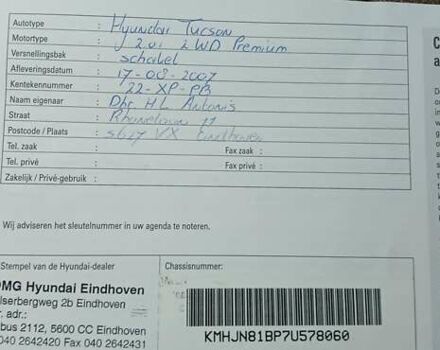 Autotype : Hyundai Tucson
Motortype : 2.0i 2WD Premium
Versnellingsbak : schakel
Afleveringsdatum : 17-08-2007
Kentekennummer : 22-XP-PB
Naam eigenaar : Dhr HL Antonis
Straat : 17
Postcode / Plaats : 5627 VX Eindhoven
Tel. zaak : Fax zaak :
Tel. privé : Fax privé :
Zakelijk / Privé-gebruik :
Wij adviseren het sleutelnummer in uw agenda te noteren.
Stempel van de Hyundai-dealer Chassisnummer:
OMG Hyundai Eindhoven
lserbergweg 2b Eindhoven
r. adr.:
bus 2112, 5600 CC Eindhoven
040 2642420 Fax 040 2642431
KMHJN81BP7U578060